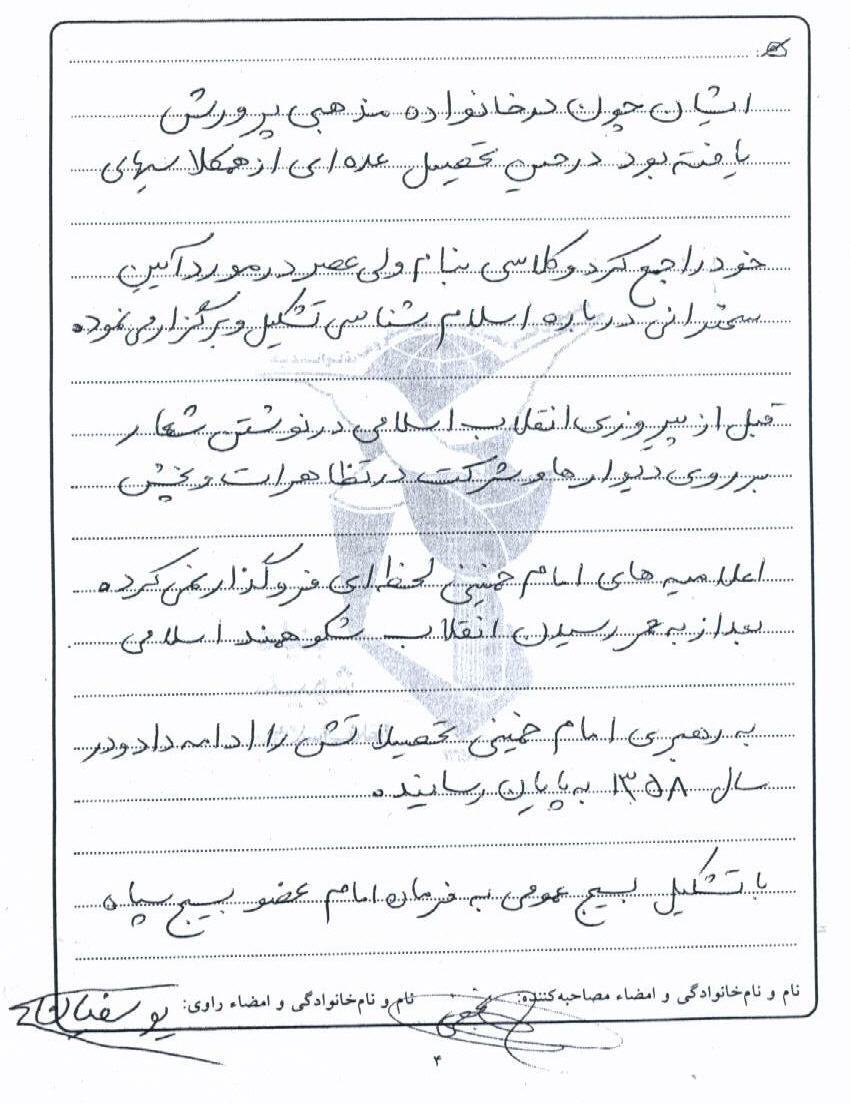 ایشان چون در خانواده مذهبی پرورش
یافته بود در حین تحصیل عده ای از همکلاسیهای
خود را جمع کرد و کلاسی بنام ولی عصر در مورد آیین
سخنرانی درباره اسلام شناسی تشکیل و برگزار می نمود.
قبل از پیروزی انقلاب اسلامی در نوشتن شعار
بر روی دیوارها و شرکت در تظاهرات و پخش
اعلامیه های امام خمینی لحظه ای فروگذار نمی کرد.
بعد از به ثمر رسیدن انقلاب شکوهمند اسلامی
به رهبری امام خمینی تحصیلاتش را ادامه داد و در
سال ۱۳۵۸ به پایان رسانید.
با تشکیل بسیج عمومی به فرمان امام عضو بسیج سپاه
نام و نام خانوادگی و امضاء مصاحبه کننده: نام و نام خانوادگی و امضاء راوی:
۴